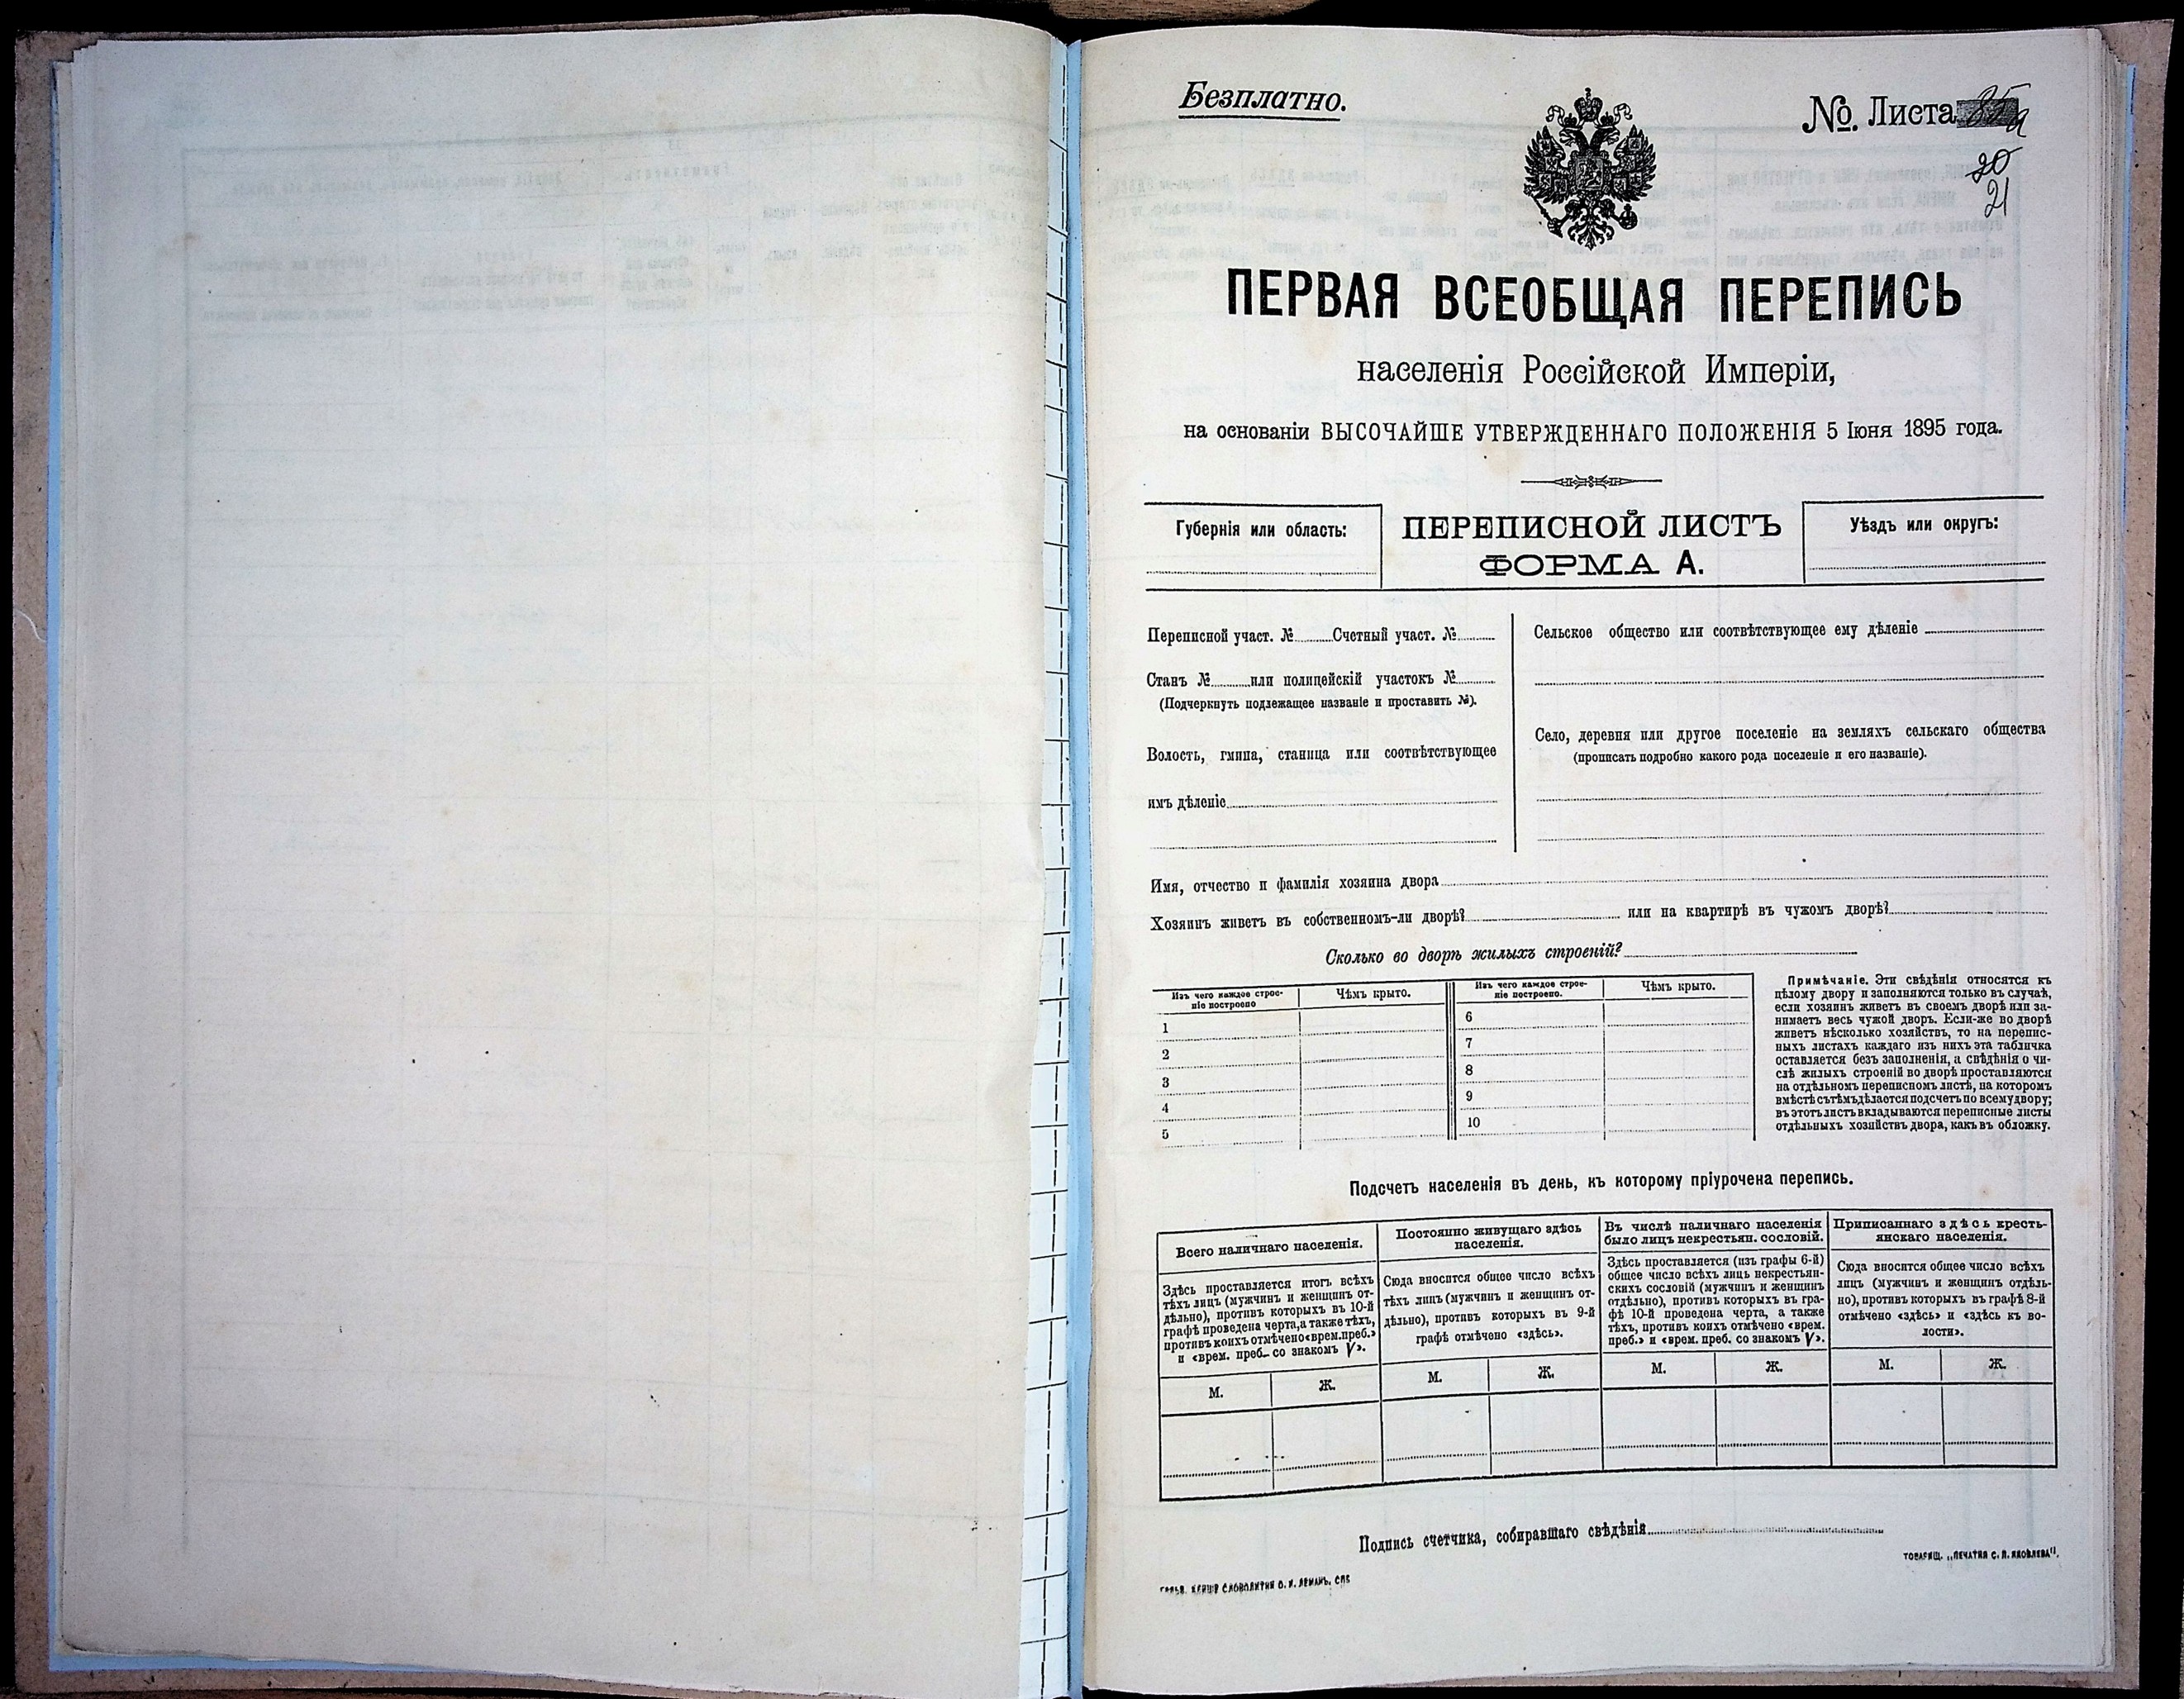 Безплатно.
№. Листа
20
21
ПЕРВАЯ ВСЕОБЩАЯ ПЕРЕПИСЬ
населенія Россійской Имперіи,
на основаніи ВЫСОЧАЙШЕ УТВЕРЖДЕННАГО ПОЛОЖЕНІЯ 5 Іюня 1895 года.
Губернія или область:
ПЕРЕПИСНОЙ ЛИСТЪ
ФОРМА А.
Уѣздъ или округъ:
Переписной участ. № Счетный участ. №
Станъ № или полицейскій участокъ №
(Подчеркнуть подлежащее названіе и проставить №).
Волость, гмина, станица или соотвѣтствующее
имъ дѣленіе
Сельское общество или соотвѣтствующее ему дѣленіе
Село, деревня или другое поселеніе на земляхъ сельскаго общества
(прописать подробно какого рода поселеніе и его названіе).
Имя, отчество и фамилія хозяина двора
Хозяинъ живетъ въ собственномъ-ли дворѣ? или на квартирѣ въ чужомъ дворѣ?
Сколько во дворѣ жилыхъ строеній?
Изъ чего каждое строе-
ніе построено
Чѣмъ крыто.
1
2
3
4
5
Изъ чего каждое строе-
ніе построено.
Чѣмъ крыто.
6
7
8
9
10
Примѣчаніе. Эти свѣдѣнія относятся къ
цѣлому двору и заполняются только въ случаѣ,
если хозяинъ живетъ въ своемъ дворѣ или за-
нимаетъ весь чужой дворъ. Если-же во дворѣ
живетъ нѣсколько хозяйствъ, то на перепис-
ныхъ листахъ каждаго изъ нихъ эта табличка
оставляется безъ заполненія, а свѣдѣнія о чи-
слѣ жилыхъ строеній во дворѣ проставляются
на отдѣльномъ переписномъ листѣ, на которомъ
вмѣстѣ съ тѣмъ дѣлается подсчетъ по всему двору;
въ этотъ листъ вкладываются переписные листы
отдѣльныхъ хозяйствъ двора, какъ въ обложку.
Подсчетъ населенія въ день, къ которому пріурочена перепись.
Всего наличнаго населенія.
Здѣсь проставляется итогъ всѣхъ
тѣхъ лицъ (мужчинъ и женщинъ от-
дѣльно), противъ которыхъ въ 10-й
графѣ проведена черта, а также тѣхъ,
противъ коихъ отмѣчено «врем. преб.»
и «врем. преб. со знакомъ V».
М. Ж.
Постоянно живущаго здѣсь
населенія.
Сюда вносится общее число всѣхъ
тѣхъ лицъ (мужчинъ и женщинъ от-
дѣльно), противъ которыхъ въ 9-й
графѣ отмѣчено «здѣсь».
М. Ж.
Въ числѣ наличнаго населенія
было лицъ некрестьян. сословій.
Здѣсь проставляется (изъ графы 6-й)
общее число всѣхъ лицъ некрестьян-
скихъ сословій (мужчинъ и женщинъ
отдѣльно), противъ которыхъ въ гра-
фѣ 10-й проведена черта, а также
тѣхъ, противъ коихъ отмѣчено «врем.
преб.» и «врем. преб. со знакомъ V».
М. Ж.
Приписаннаго здѣсь кресть-
янскаго населенія.
Сюда вносится общее число всѣхъ
лицъ (мужчинъ и женщинъ отдѣль-
но), противъ которыхъ въ графѣ 8-й
отмѣчено «здѣсь» и «здѣсь къ во-
лости».
М. Ж.
Подпись счетчика, собиравшаго свѣдѣнія
ТОВАРИЩ. „ПЕЧАТНЯ С. П. ЯКОВЛЕВА".
СЛОВОЛИТНЯ О. И. ЛЕМАНЪ. СПБ